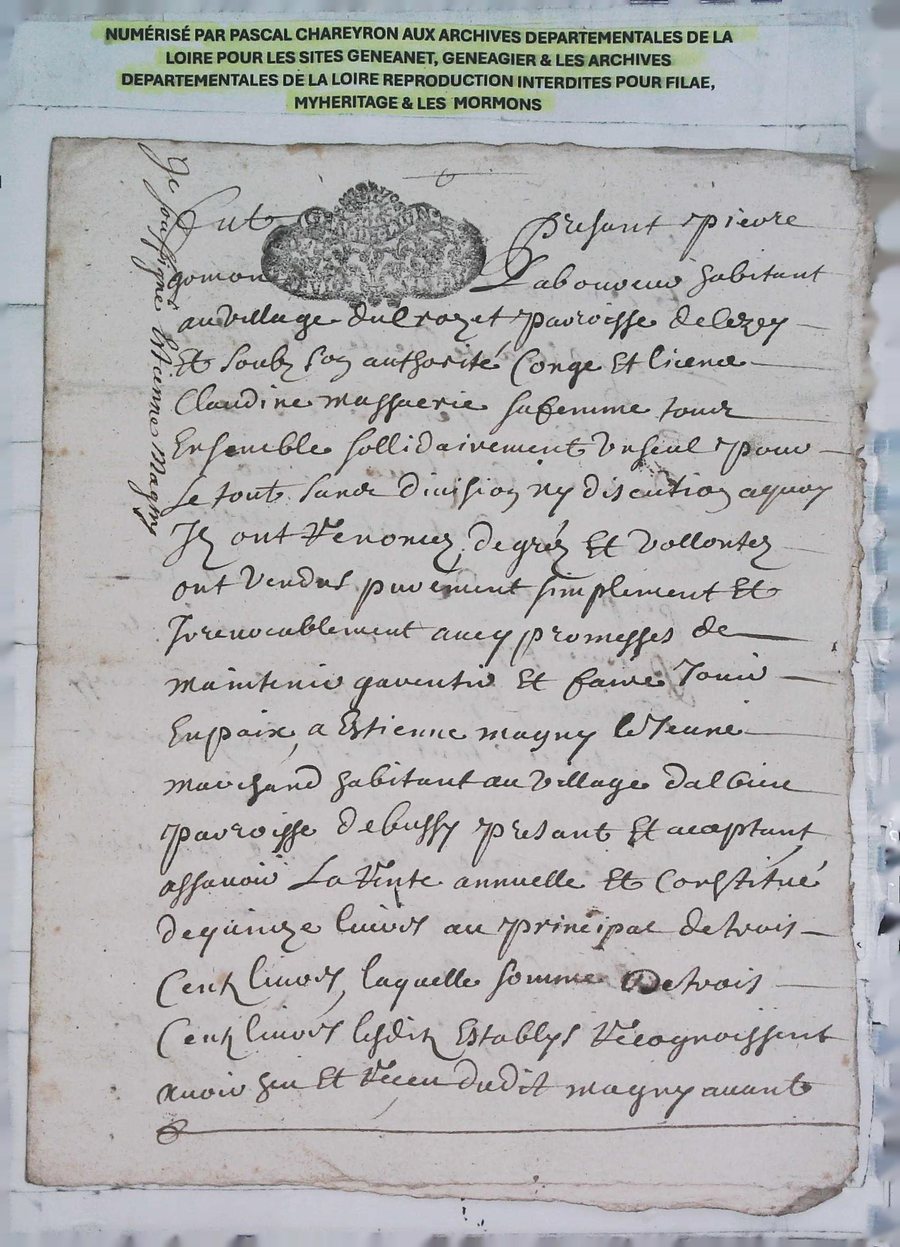 NUMÉRISÉ PAR PASCAL CHAREYRON AUX ARCHIVES DEPARTEMENTALES DE LA
LOIRE POUR LES SITES GENEANET, GENEAGIER & LES ARCHIVES
DEPARTEMENTALES DE LA LOIRE REPRODUCTION INTERDITES POUR FILAE,
MYHERITAGE & LES MORMONS
Je soussigné Estienne Magny
Fut Presant pierre
gomon Laboureur habitant
au village du Crozet parroisse de
Et soubz son authorité Conge Et licence
Claudine massacrie sa femme tous
Ensemble sollidairement Un seul pour
Le tout sans division ny discution aquoy
Ilz ont renoncez, de gréz Et vollontez
ont vendus purement simplement Et
Irrevocablement avecq promesses de
maintenir garentir Et faire Jouir
En paix, a Estienne magny le Jeune
marchand habitant au village dalbieu
parroisse de bussy presant Et aceptant
assavoir La rente annuelle Et Constitué
de quinze livres au principal de trois
Centz livres, laquelle somme de trois
Centz livres lesditz Establys recognoissent
avoir heu Et receu dudit magny avant